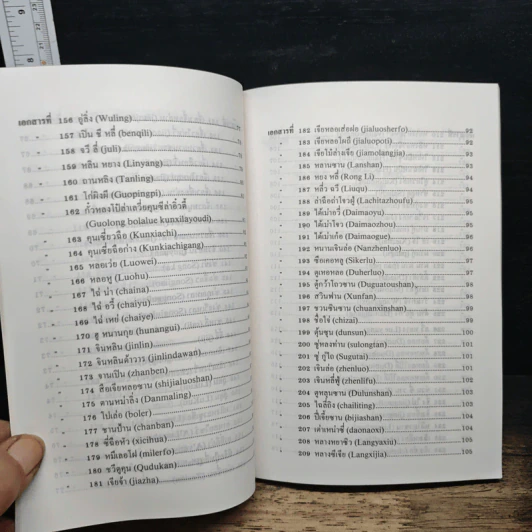 เอกสารที่ 156 อู่ลิ่ง (Wuling)
" 157 เป็น ชี หลี่ (benqili)
" 158 จวี ลี่ (juli)
" 159 หลิน หยาง (Linyang)
" 160 ถานหลิง (Tanling)
" 161 ไก่ผิงผี (Guopingpi)
" 162 กั๋วหลงโป๋ลำเลวี่ยคุนซีลำอิ๋วตี้
(Guolong bolalue kunxilayoudi)
" 163 คุนเซี่ยวฉือ (Kunxiachi)
" 164 คุนเซี่ยฉือก่าง (Kunkiachigang)
" 165 หลอเว่ย (Luowei)
" 166 หลอหู (Luohu)
" 167 ไฉ่ น่า (chaina)
" 168 ไฉ่ อวี้ (chaiyu)
" 169 ไฉ่ เหย่ (chaiye)
" 170 ฮู หนานกุย (hunangui)
" 171 จินหลิน (jinlin)
" 172 จินหลินต้าวาร (jinlindawan)
" 173 จานเป็น (zhanben)
" 174 สือเจียหลอซาน (shijialuoshan)
" 175 ตานหม่าลิ่ง (Danmaling)
" 176 ไปเล่อ (boler)
" 177 ชานป้าน (chanban)
" 178 ซี่ฉือหัว (xicihua)
" 179 หมีเลอโฝ (milerfo)
" 180 ชวีตูขุน (Qudukan)
" 181 เจียจ๋า (jiazha)
เอกสารที่ 182 เจียหลอเส่อฝอ (jialuosherfo) 92
" 183 เจียหลอโผตี (jialuopoti) 92
" 184 เจียโม่ล่างเจีย (jiamolangjia) 93
" 185 หลานซาน (Lanshan) 93
" 186 หอง หลี่ (Rong Li) 94
" 187 หลิ่ว ฉวี (Liuqu) 94
" 188 ลำฉือถ่าไขวฝู้ (Lachitazhoufu) 94
" 189 ไต้เม่าอวี่ (Daimaoyu) 95
" 190 ไต้เม่าโจว (Daimaozhou) 95
" 191 ไต้เม่าเก้อ (Daimaogue) 95
" 192 หนานเจินล่อ (Nanzhenluo) 96
" 193 ซือเคอหลู (Sikerlu) 97
" 194 ตูเหอหลอ (Duherluo) 97
" 195 ตู๋กว้าโถวซาน (Duguatoushan) 98
" 196 สวินฟาน (Xunfan) 98
" 197 ชวนซินซาน (chuanxinshan) 99
" 198 ชื่อไจ้ (chizai) 99
" 199 ตุ้นซุน (dunsun) 100
" 200 ซู่หลงท่าน (sulongtan) 100
" 201 ซู่ กู่ไถ (Sugutai) 101
" 202 เจินล่อ (zhenluo) 101
" 203 เจินหลี่ฟู้ (zhenlifu) 102
" 204 ตูหลุนซาน (Dulunshan) 102
" 205 ไฉลี่ถิง (chailiting) 103
" 206 ปี่เจี่ยซาน (bijiashan) 103
" 207 เต๋าเหน่าซี่ (daonaoxi) 104
" 208 หลางหยาซิว (Langyaxiu) 104
" 209 หลางซีเจีย (Langxijia) 105